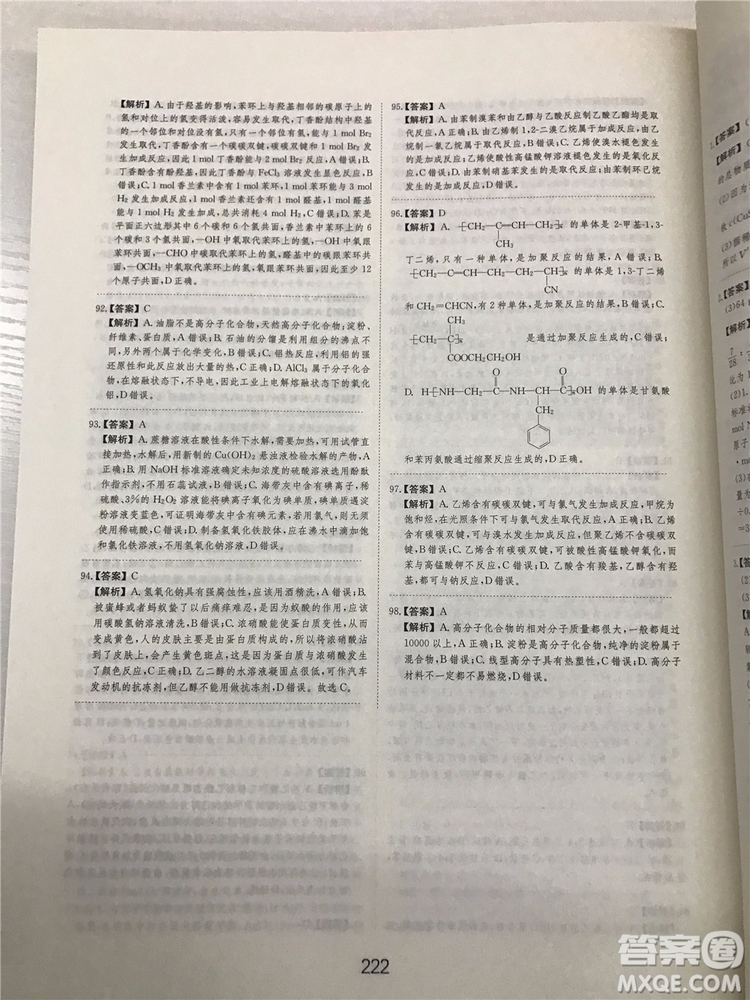 【解析】A.由于羟基的影响,苯环上与羟基相邻的碳原子上的
氢和对位上的氢变得活泼,容易发生取代,丁香酚结构中
的一个邻位和对位没有氢,只有一个氢,能与1 mol Br₂
发生取代,丁香酚含有一个碳碳双键,碳碳双键和1 mol Br₂
发生加成反应,因此1 mol丁香酚能与2 mol Br₂反应,A错误;B.
丁香酚含有酚羟基,丁香酚与FeCl₃溶液发生显色反应,
B错误;C.1 mol香兰素含有1 mol苯环,1 mol苯环与3 mol
H₂发生加成反应,1 mol香兰素含有1 mol醛基,1 mol醛基
能与1 mol H₂发生加成,总共消耗4 mol H₂,C错误;D.苯是
平面正六边形其中6个碳和6个氢共面,香兰素的主体中6
个碳和3个氢共面,—OH中氧取代苯环上氢,—OH中氧跟
苯环共面,—CHO中碳取代苯环上的氢,碳跟苯环共
面,—OCH₃中氧取代苯环上的氢,氧跟苯环共面,因此至少12
个原子共面,D正确。
92.【答案】C
【解析】A.油脂不是高分子化合物,天然高分子化合物;淀粉、
纤维素、蛋白质,A错误;B.石油的分馏是利用组分的沸点不
同,另外两个属于化学变化,B错误;C.铝热反应,利用铝的强
还原性和此反应放出大量的热,C正确;D.AlCl₃属于分子化合
物,在熔融状态下,不导电,因此工业上电解熔融状态下的氧化
铝,D错误。
93.【答案】A
【解析】A.蔗糖溶液在酸性条件下水解,需要加热,可用试管直
接加热,水解后,用新制的Cu(OH)₂悬浊液检验水解的产物,A
正确;B.用NaOH标准溶液确定未知浓度的硫酸溶液选用酚酞
作指示剂,不用石蕊试液,B错误;C.海带灰中含有碘单质,用稀
硫酸、3%的H₂O₂溶液能将碘离子氧化为碘单质,碘单质遇淀
粉溶液变蓝色,可证明海带灰中含有碘元素,若用氯气,则无须
使用稀硫酸,C错误;D.制备氢氧化铁胶体,应为向沸水中滴加饱
和氯化铁溶液,不用氢氧化钠溶液,D错误。
94.【答案】C
【解析】A.氢氧化钠具有强腐蚀性,应该用酒精洗,A错误;B.
被蜜蜂或者蚂蚁蛰了以后痛痒难忍,是因为蚁酸的作用,应该
用碳酸氢钠溶液清洗,B错误;C.浓硝酸能使蛋白质变性,从而
变成黄色,人的皮肤主要是由蛋白质构成的,浓硝酸不慎沾到
了皮肤上,会产生黄色斑点,这是因为蛋白质与浓硝酸发生
了颜色反应,C正确;D.乙二醇的水溶液凝固点很低,可作汽车
发动机的抗冻剂,但乙醇不能用做抗冻剂,D错误。故选C。
95.【答案】A
【解析】A.由苯制溴苯和由乙醇与乙酸反应制乙酸乙酯均是
取代反应,A正确;B.由乙烯制1,2-二溴乙烷属于加成反应,由乙
烷制一氯乙烷属于取代反应,B错误;C.乙烯使溴水褪色发生
的是加成反应,乙烯使酸性高锰酸钾溶液褪色发生的是氧化反
应,C错误;D.由苯制硝基苯发生的是取代反应,由苯制环己烷
发生的是加成反应,D错误。
96.【答案】D
【解析】A. ⁅CH₂—C=CH—CH₂⁆ₙ 的单体是2-甲基-1,3-
CH₃
丁二烯,只有一种单体,是加聚反应的生成物,A错误;B.
⁅CH₂—CH=CH—CH₂—CH₂—CH⁆ₙ 的单体是1,3-丁二烯
CN
和CH₂=CHCN,有2种单体,是加聚反应的生成物,B错误;C.
CH₃
⁅CH₂—C⁆ₙ 是通过加聚反应生成的,C错误;
COOCH₂CH₂OH
O O
D. H⁅NH—CH₂—C—NH—CH—C⁆ₙOH的单体是甘氨酸
CH₂
和苯丙氨酸通过缩聚反应生成的,D正确。
97.【答案】A
【解析】A.乙烯含有碳碳双键,可与氯气发生加成反应,甲烷为
饱和烃,在光照条件下可与氯气发生取代反应,A正确;B.乙烯
含有碳碳双键,可与溴水发生加成反应,而苯与溴水不反应,B
错误;C.乙烯含有碳碳双键,可被酸性高锰酸钾氧化,而苯
与高锰酸钾不反应,C错误;D.乙酸含有羧基,乙醇含有羟
基,二者都可与钠反应,D错误。
98.【答案】A
【解析】A.高分子化合物的相对分子质量都很大,一般都超过
10000以上,A正确;B.淀粉是高分子化合物,纯净的淀粉属于
混合物,B错误;C.线型高分子具有热塑性,C错误;D.高分子
材料不一定都不易燃烧,D错误。
222
答案圈
MXQE.COM